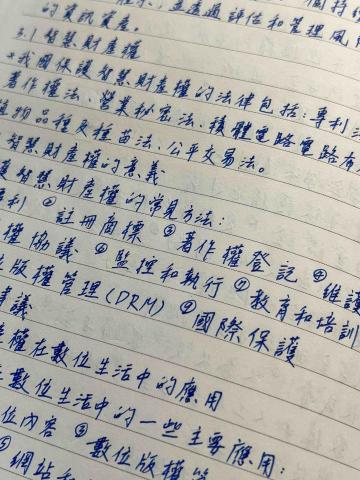 的資訊資產。
3.1 智慧財產權
我國保護智慧財產權的法律包括:專利
著作權法、營業秘密法、積體電路電路布
物品種及種苗法、公平交易法。
智慧財產權的意義
智慧財產權的常見方法:
② 註冊商標 ③ 著作權登記 ④ 維護
權協議 ⑥ 監控和執行 ⑦ 教育和培訓
版權管理(DRM) ⑨ 國際保護
議
權在數位生活中的應用
數位生活中的一些主要應用:
位內容 ② 數位版權管
⑤ 網站